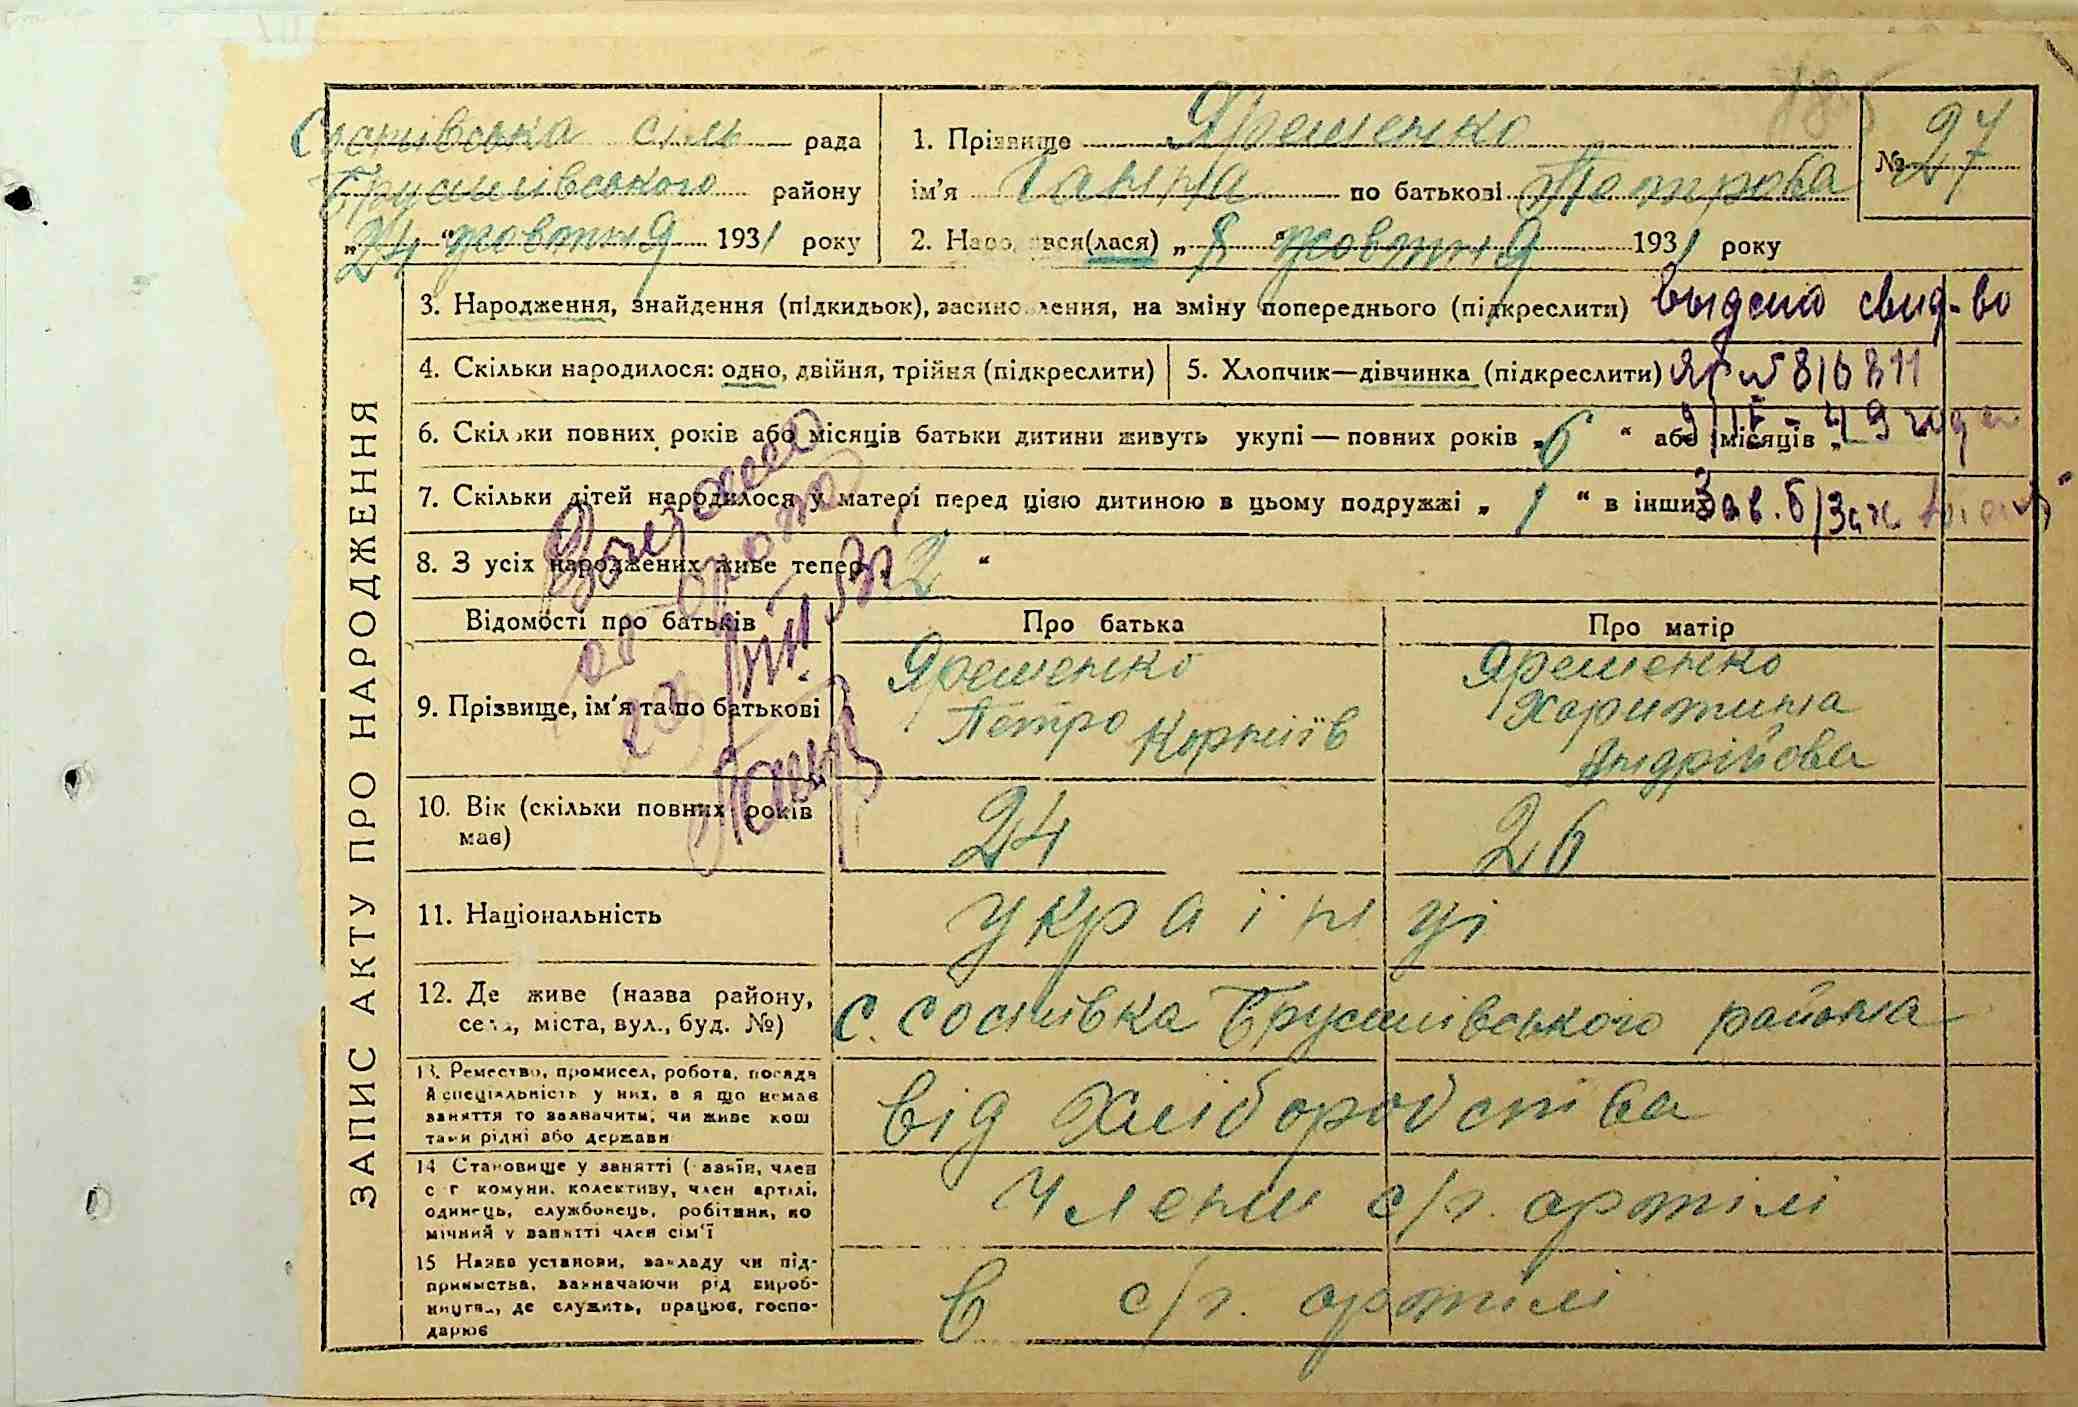 Соснівська сіль рада
Брусилівського району
„24“ жовтня 1931 року
1. Прізвище Яременко
ім'я Ганна по батькові Петрова
№ 27
2. Народився(лася) „8“ жовтня 1931 року
3. Народження, знайдення (підкидьок), засиновлення, на зміну попереднього (підкреслити)
выдано свид-во
4. Скільки народилося: одно, двійня, трійня (підкреслити)
5. Хлопчик—дівчинка (підкреслити)
6. Скільки повних років або місяців батьки дитини живуть укупі — повних років „6“ або місяців „
49 года
7. Скільки дітей народилося у матері перед цією дитиною в цьому подружжі „1“ в інших
Зав. б/Загс
8. З усіх народжених живе тепер „2“
Відомості про батьків
Про батька
Про матір
9. Прізвище, ім'я та по батькові
Яременко
Петро Корніїв
Яременко
Харитина
Андрійова
10. Вік (скільки повних років
має)
24
26
11. Національність
українці
12. Де живе (назва району,
села, міста, вул., буд. №)
с. Соснівка Брусилівського района
13. Ремество, промисел, робота, посада
й спеціяльність у них, а я що немає
заняття то зазначити, чи живе кош
тами рідні або держави
від хліборобства
14 Становище у занятті (хазяїн, член
с г комуни, колективу, член артілі,
одинець, службовець, робітник, по
мічний у занятті член сім'ї
Члени с/г. артілі
15 Назва установи, закладу чи під-
приємства, зазначаючи рід вироб-
ництва, де служить, працює, госпо-
дарює
в с/г. артілі
ЗАПИС АКТУ ПРО НАРОДЖЕННЯ